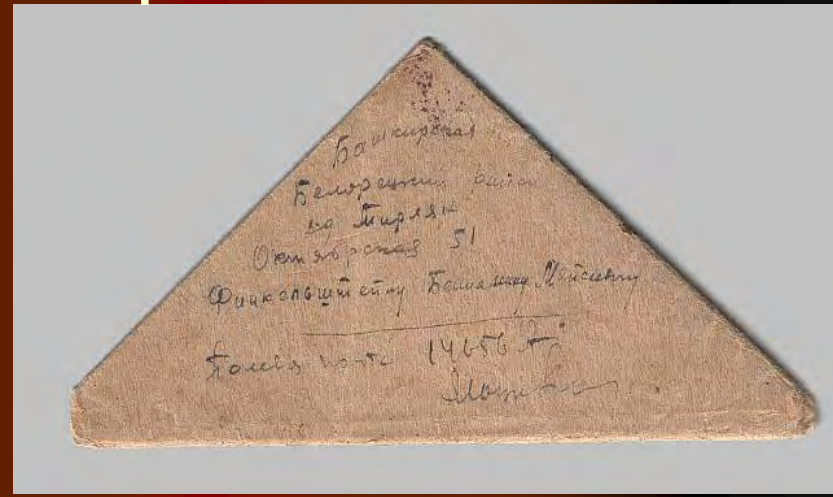 Башкирская
Белорецкий район
Тирлян
Октябрьская 51
Финкельштейну Бениамину Мойсеевичу
Полева почта 14656